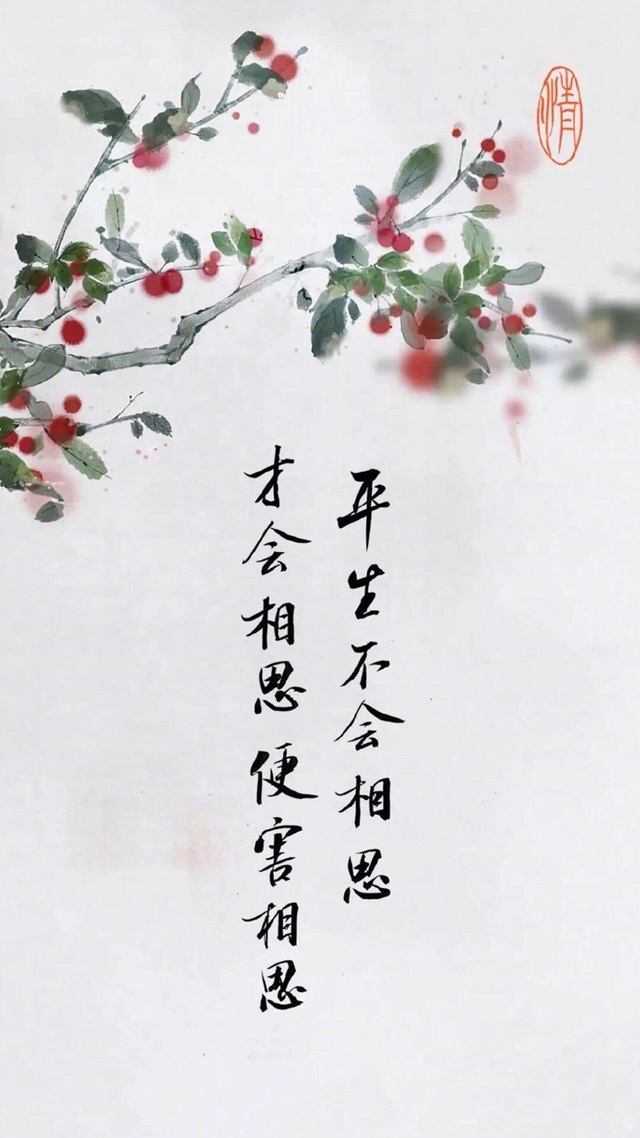 情
平生不会相思
才会相思 便害相思